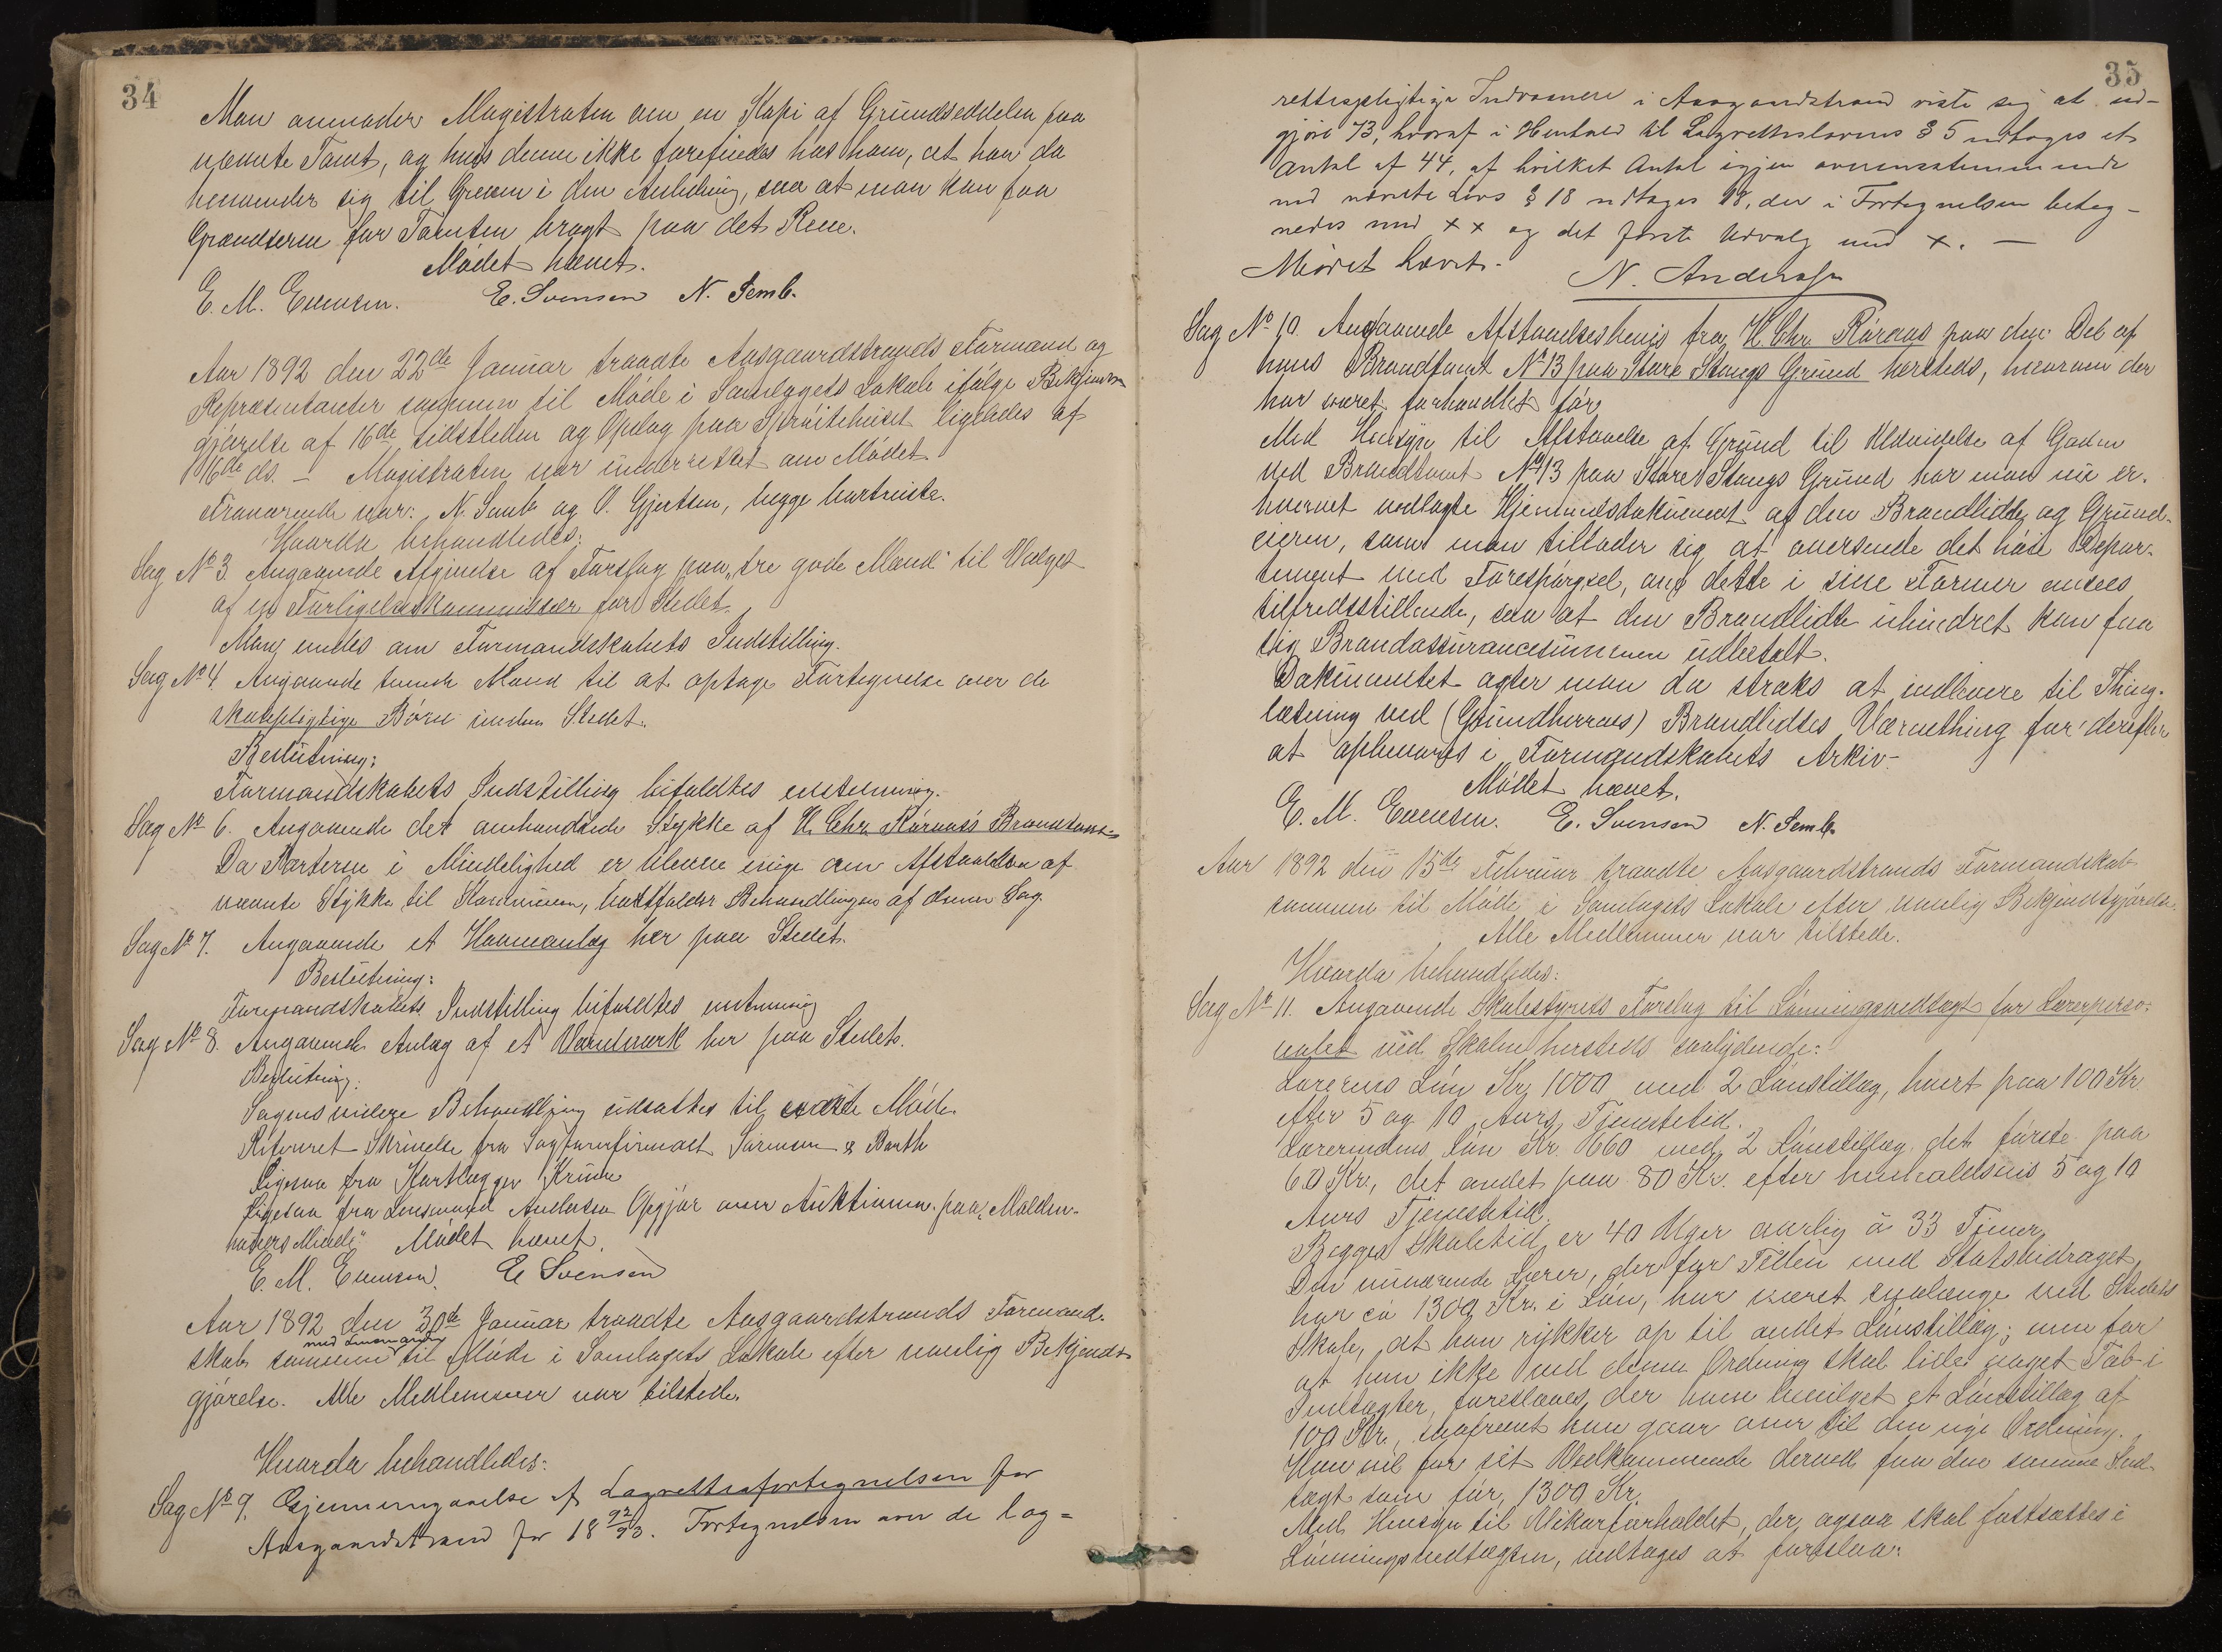 34
Man anmoder Magistraten om en Kopi af Grundseddelen paa
nævnte Tomt, og hvis denne ikke forefindes hos ham, at han da
henvender sig til Greven i den Anledning, saa at man kan faa
Grændserne for Tomten bragt paa det Rene.
Mödet hævet.
E. M. Evensen. E. Svensen N. Semb.
Aar 1892 den 22de Januar traadte Aasgaardstrands Formænd og
Repræsentanter sammen til Möde i Samlagets Lokale ifölge Bekjendt-
gjörelse af 16de sidstleden og Opslag paa Spröitehuset ligeledes af
16de ds. – Magistraten var underrettet om Mödet.
Fraværende var: N. Semb og O. Gjertsen, begge bortreiste.
Hvorda behandledes:
Sag No 3. Angaaende Afgivelse af Forslag paa „tre gode Mænd" til Valget
af en Forligelseskommissær for Stedet.
Man enedes om Formandskabets Indstilling.
Sag No 4. Angaaende tvende Mænd til at optage Fortegnelse over de
skolepligtige Börn inden Stedet.
Beslutning:
Formandskabets Indstilling bifaldtes enstemmig.
Sag No 6. Angaaende det omhandlede Stykke af H. Chr. Röraas's Brandtomt
Da Parterne i Mindelighed er blevne enige om Afstaaelsen af
nævnte Stykke til Kommunen, bortfalder Behandlingen af denne Sag.
Sag No 7. Angaaende et Havneanlæg her paa Stedet.
Beslutning:
Formandskabets Indstilling bifaldtes enstemmig
Sag No 8. Angaaende Anlæg af et Vandværk her paa Stedet.
Beslutning:
Sagens videre Behandling udsættes til næste Möde.
Refereret Skrivelse fra Sagförerfirmaet Sörensen & Barth
Ligesaa fra Kartlægger Krüm
Ligesaa fra Lensmand Andersen Opgjör over Auktionen paa „Molden-
havers Minde" Mödet hævet.
E. M. Evensen. E Svensen
Aar 1892 den 30te Januar traadte Aasgaardstrands Formand-
med Lensmanden
skab sammen til Möde i Samlagets Lokale efter vanlig Bekjendt-
gjörelse. Alle Medlemmer var tilstede.
Hvorda behandledes:
Sag No 9. Gjennemgaaelse af Lagrettesfortegnelsen for
Aasgaardstrand for 18 92/93. Fortegnelsen over de lag=
35
rettespligtige Indvaanere i Aasgaardstrand viste sig at ud-
gjöre 73, hvoraf i Henhold til Lagrettelovens § 5 udtoges et
Antal af 44, af hvilket Antal igjen overensstemmende
med nævnte Lovs § 18 udtages 18, der i Fortegnelsen beteg-
nedes med ×× og det förste Udvalg med ×. –
Mödet hævet. N. Andersen
Sag No 10. Angaaende Afstaaelsesbevis fra H. Chr. Röraas paa den Del af
hans Brandtomt No 13 paa Store Stangs Grund hersteds, hvorom der
har været forhandlet för.
Med Hensyn til Afstaaelse af Grund til Udvidelse af Gaden
ved Brandtomt No 13 paa Store Stangs Grund har man nu er-
hvervet vedlagte Hjemmelsdokument af den Brandlidte og Grund-
eieren, som man tillader sig at oversende det höie Depar-
tement med Forespörgsel, om dette i sine Former ansees
tilfredsstillende, saa at den Brandlidte uhindret kan faa
sig Brandassurancesummen udbetalt.
Dokumentet agter man da straks at indlevere til Thing-
læsning ved (Grundherrens) Brandlidtes Værnething for derefter
at opbevares i Formandskabets Arkiv-
Mödet hævet.
E. M. Evensen. E. Svensen N. Semb
Aar 1892 den 15de Februar traadte Aasgaardstrands Formandskab
sammen til Möde i Samlagets Lokale efter vanlig Bekjendtgjörelse.
Alle Medlemmer var tilstede.
Hvorda behandledes:
Sag No 11. Angaaende Skolestyrets Forslag til Lönningsvedtægt for Lærerperso-
nalet ved Skolen hersteds saalydende:
Lærerens Lön Kr. 1000 med 2 Lönstillæg, hvert paa 100 Kr.
efter 5 og 10 Aars Tjenestetid.
Lærerindens Lön Kr. 660 med 2 Lönstillæg det förste paa
60 Kr., det andet paa 80 Kr. efter henholdsvis 5 og 10
Aars Tjenestetid.
Begges Skoletid er 40 Uger aarlig à 33 Timer,
Den nuværende Lærer, der for Tiden med Statsbidraget,
har ca 1300 Kr. i Lön, har været saalænge ved Stedets
Skole, at han rykker op til andet Lönstillæg; men for
at han ikke ved denne Ordning skal lide noget Tab i
Indtægter, foreslaaes der ham bevilget et Lönstillæg af
100 Kr., saafremt han gaar over til den nye Ordning.
Han vil for sit Vedkommende derved faa den samme Ind-
tægt som för, 1300 Kr.
Med Hensyn til Vikarforholdet, der ogsaa skal fastsættes i
Lönningsvedtægten, vedtoges at foreslaa: